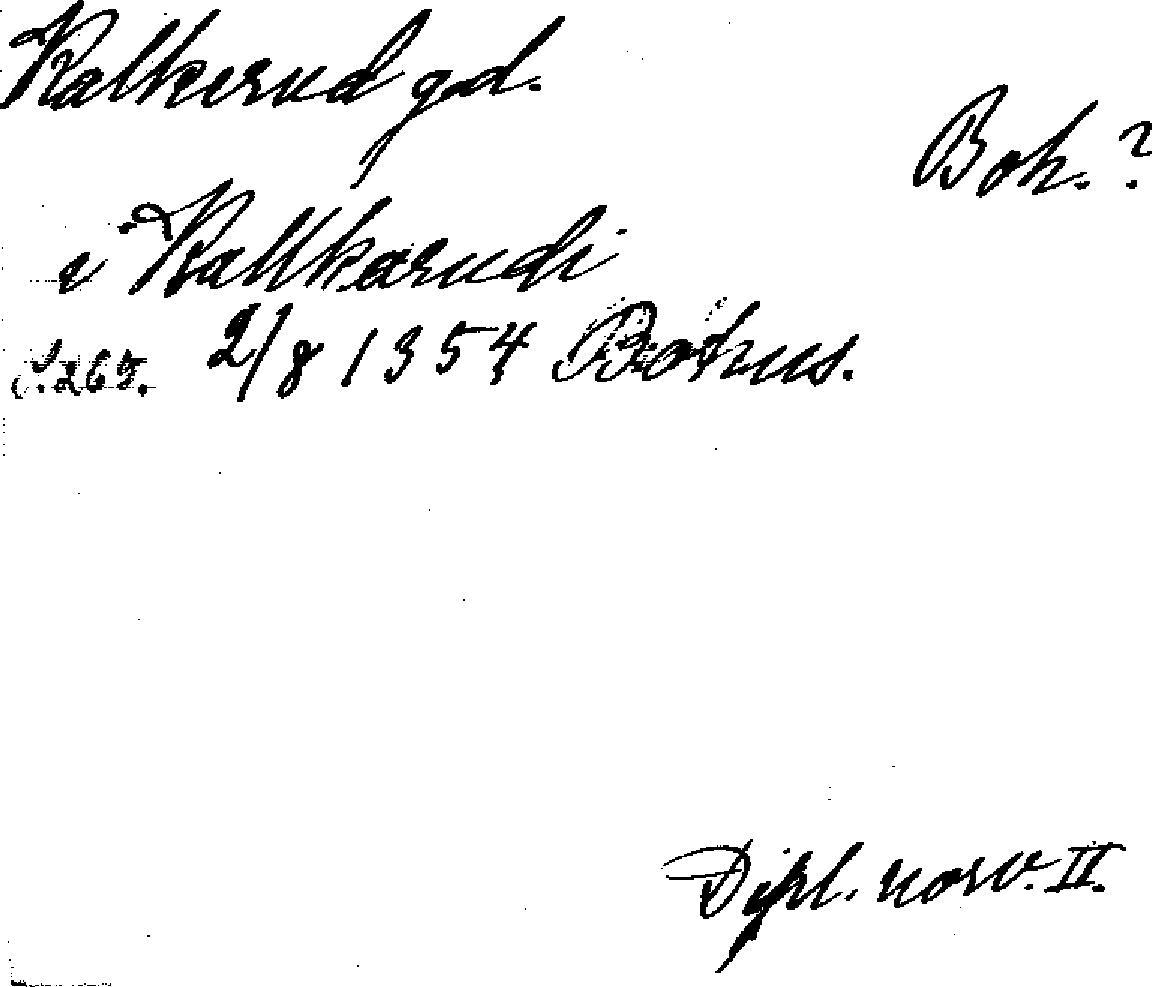 Kalkerud gd.
Boh.?
i Kallkarudi
S. 265. 2/8 1354 Bohus.
Dipl. norv. II.